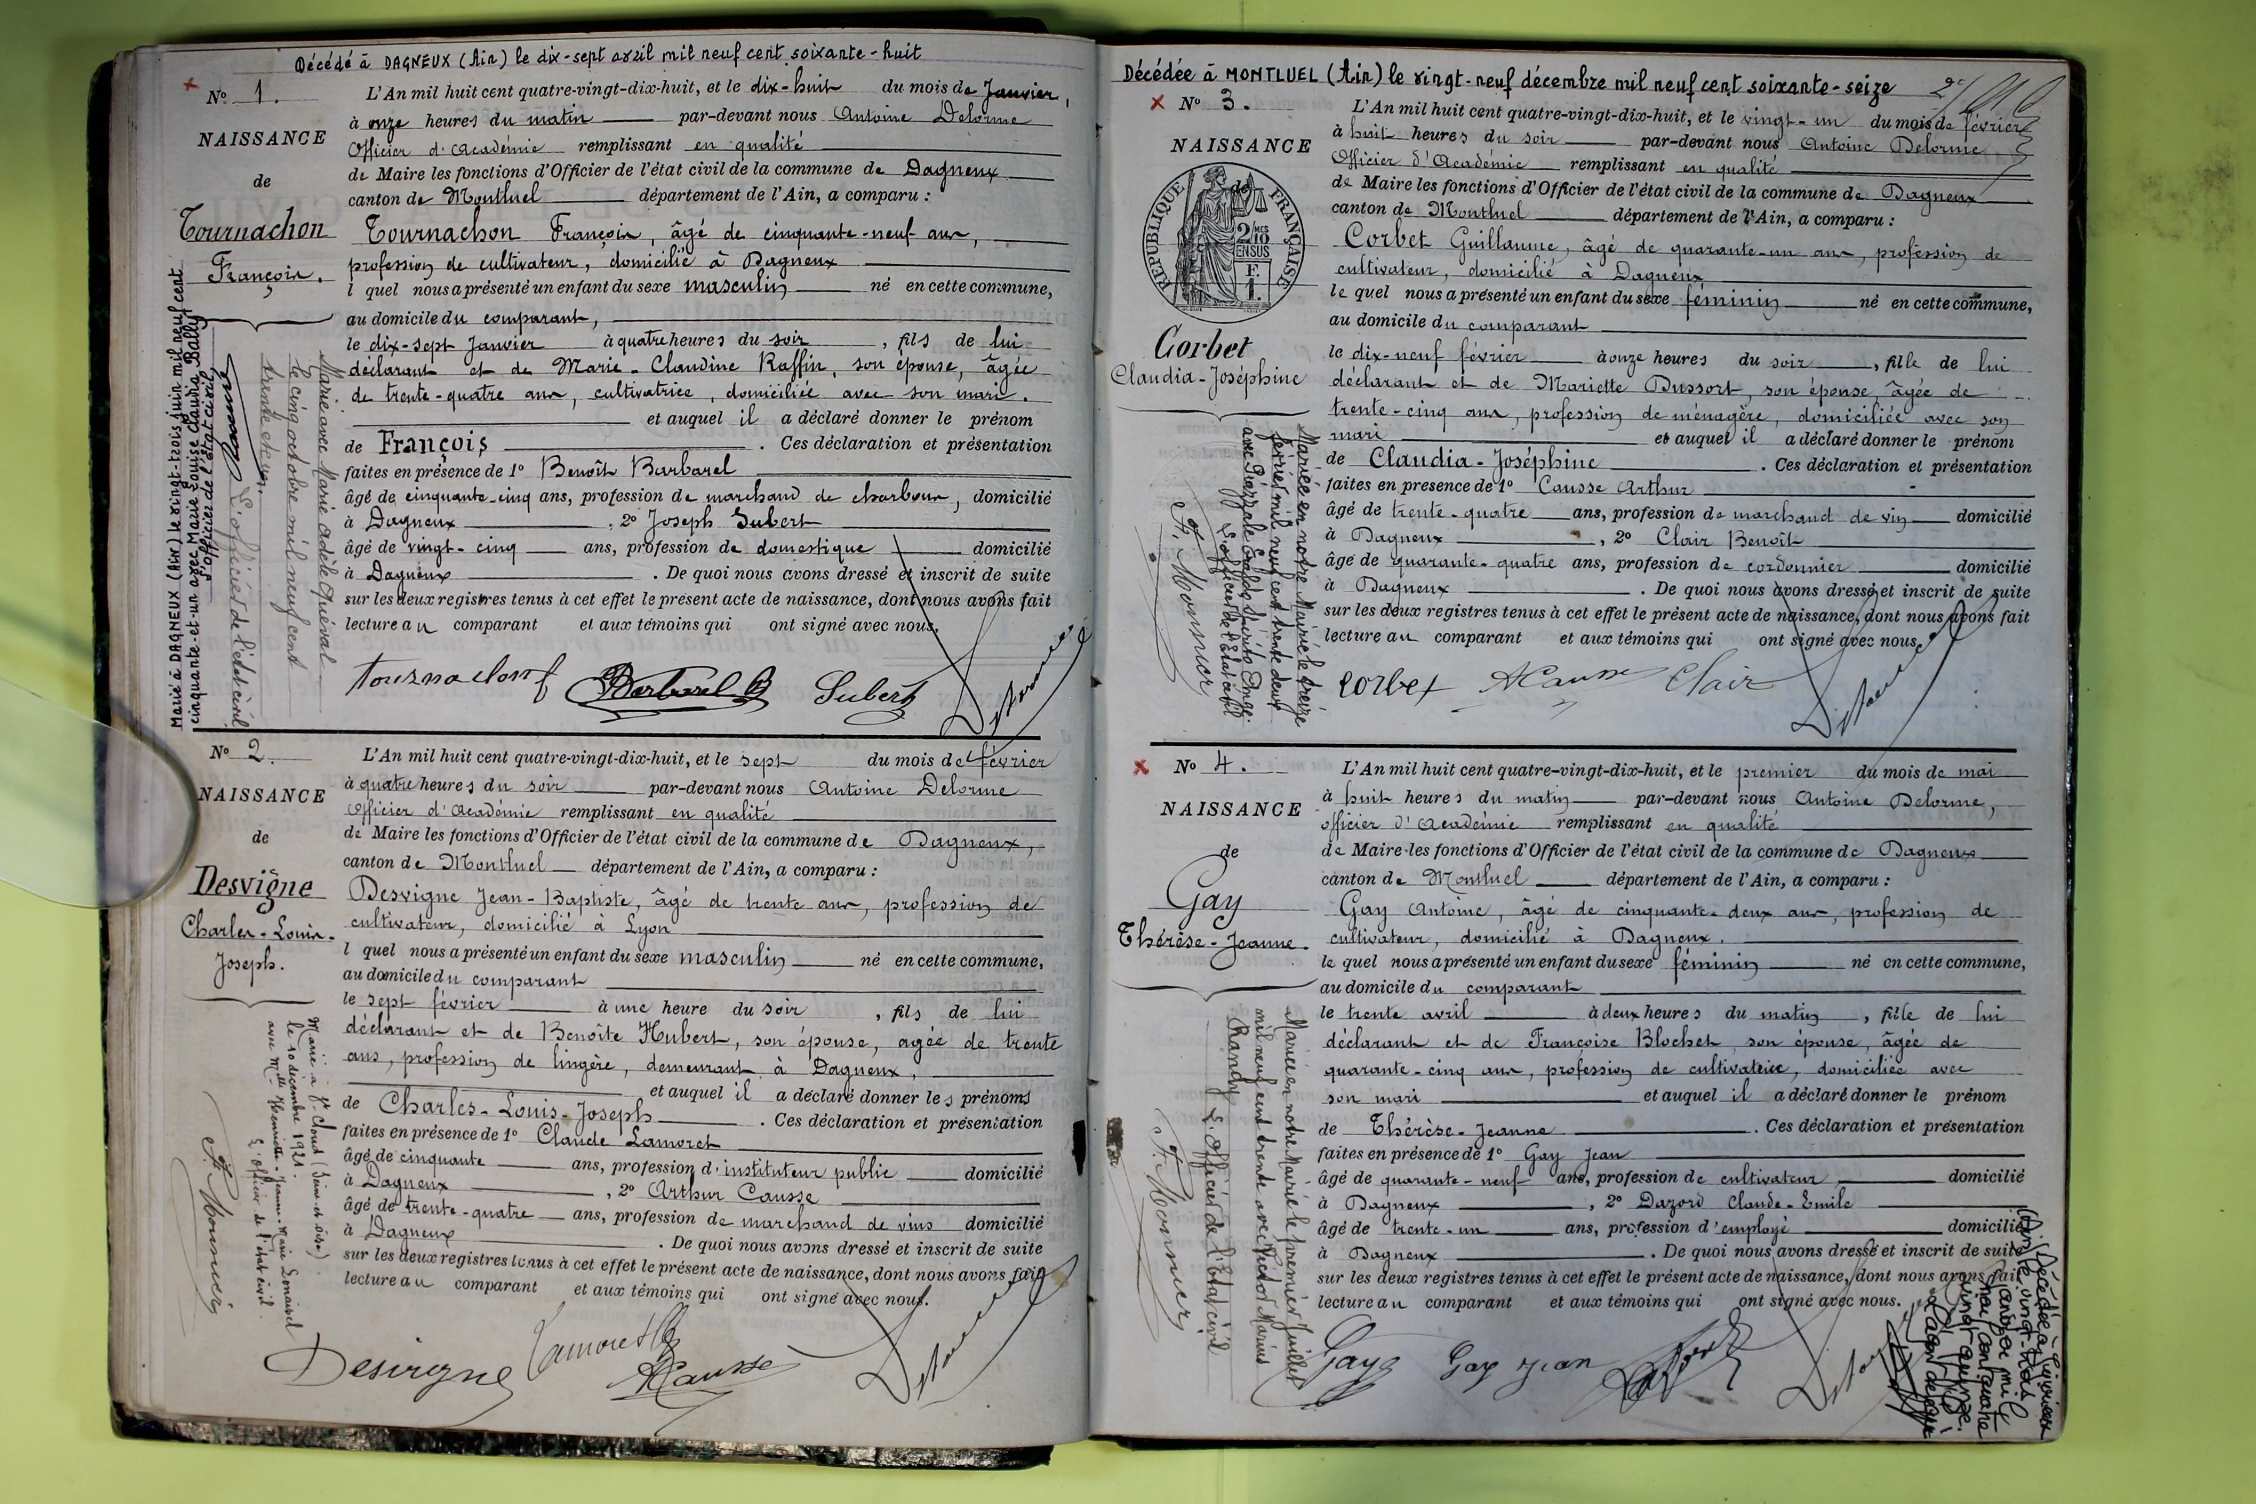 Décédé à DAGNEUX (Ain) le dix-sept avril mil neuf cent soixante-huit
N° 1.
NAISSANCE
de
Tournachon
François.
L'An mil huit cent quatre-vingt-dix-huit, et le dix-huit du mois de Janvier,
à onze heures du matin par-devant nous Antoine Delorme
Officier d'Académie remplissant en qualité
de Maire les fonctions d'Officier de l'état civil de la commune de Dagneux
canton de Montluel département de l'Ain, a comparu :
Tournachon François, âgé de cinquante-neuf ans,
profession de cultivateur, domicilié à Dagneux
l quel nous a présenté un enfant du sexe masculin né en cette commune,
au domicile du comparant,
le dix-sept Janvier à quatre heures du soir, fils de lui
déclarant et de Marie-Claudine Raffin, son épouse, âgée
de trente-quatre ans, cultivatrice, domiciliée avec son mari.
et auquel il a déclaré donner le prénom
de François. Ces déclaration et présentation
faites en présence de 1° Benoît Barbarel
âgé de cinquante-cinq ans, profession de marchand de charbons, domicilié
à Dagneux, 2° Joseph Subert
âgé de vingt-cinq ans, profession de domestique domicilié
à Dagneux. De quoi nous avons dressé et inscrit de suite
sur les deux registres tenus à cet effet le présent acte de naissance, dont nous avons fait
lecture au comparant et aux témoins qui ont signé avec nous.
Marié à DAGNEUX (Ain) le vingt-trois juin mil neuf cent
cinquante-et-un avec Marie Louise Claudia Bally
L'officier de l'état civil,
Marié avec Marie Adèle Quéval
le cinq octobre mil neuf cent
trente et un.
L'officier de l'état civil
Tournachon f Barbarel B Subert Delorme
N° 2.
NAISSANCE
de
Desvigne
Charles-Louis-
Joseph.
L'An mil huit cent quatre-vingt-dix-huit, et le sept du mois de février
à quatre heures du soir par-devant nous Antoine Delorme
Officier d'Académie remplissant en qualité
de Maire les fonctions d'Officier de l'état civil de la commune de Dagneux,
canton de Montluel département de l'Ain, a comparu :
Desvigne Jean-Baptiste, âgé de trente ans, profession de
cultivateur, domicilié à Lyon
l quel nous a présenté un enfant du sexe masculin né en cette commune,
au domicile du comparant
le sept février à une heure du soir, fils de lui
déclarant et de Benoîte Hubert, son épouse, âgée de trente
ans, profession de lingère, demeurant à Dagneux,
et auquel il a déclaré donner les prénoms
de Charles-Louis-Joseph. Ces déclaration et présentation
faites en présence de 1° Claude Lamoret
âgé de cinquante ans, profession d'instituteur public domicilié
à Dagneux, 2° Arthur Causse
âgé de trente-quatre ans, profession de marchand de vins domicilié
à Dagneux. De quoi nous avons dressé et inscrit de suite
sur les deux registres tenus à cet effet le présent acte de naissance, dont nous avons fait
lecture au comparant et aux témoins qui ont signé avec nous.
Marié à St Cloud (Seine et Oise)
le 10 décembre 1921.
avec Mlle Henriette-Jeanne-Marie
L'officier de l'état civil.
F. Monnier
Desvigne Lamoret A Causse Delorme
Décédée à MONTLUEL (Ain) le vingt-neuf décembre mil neuf cent soixante-seize
N° 3.
NAISSANCE
de
RÉPUBLIQUE FRANÇAISE
2/10
EN SUS
Corbet
Claudia-Joséphine
L'An mil huit cent quatre-vingt-dix-huit, et le vingt-un du mois de février
à huit heures du soir par-devant nous Antoine Delorme
Officier d'Académie remplissant en qualité
de Maire les fonctions d'Officier de l'état civil de la commune de Dagneux
canton de Montluel département de l'Ain, a comparu :
Corbet Guillaume, âgé de quarante-un ans, profession de
cultivateur, domicilié à Dagneux
le quel nous a présenté un enfant du sexe féminin né en cette commune,
au domicile du comparant
le dix-neuf février à onze heures du soir, fille de lui
déclarant et de Mariette Dussort, son épouse, âgée de
trente-cinq ans, profession de ménagère, domiciliée avec son
mari et auquel il a déclaré donner le prénom
de Claudia-Joséphine. Ces déclaration et présentation
faites en présence de 1° Causse Arthur
âgé de trente-quatre ans, profession de marchand de vin domicilié
à Dagneux, 2° Clair Benoît
âgé de quarante-quatre ans, profession de cordonnier domicilié
à Dagneux. De quoi nous avons dressé et inscrit de suite
sur les deux registres tenus à cet effet le présent acte de naissance, dont nous avons fait
lecture au comparant et aux témoins qui ont signé avec nous.
Mariée en notre Mairie le treize
février mil neuf cent trente deux
L'officier de l'Etat civil
F. Monnier
Corbet A Causse Clair Delorme
N° 4.
NAISSANCE
de
Gay
Thérèse-Jeanne.
L'An mil huit cent quatre-vingt-dix-huit, et le premier du mois de mai
à huit heures du matin par-devant nous Antoine Delorme,
officier d'Académie remplissant en qualité
de Maire les fonctions d'Officier de l'état civil de la commune de Dagneux
canton de Montluel département de l'Ain, a comparu :
Gay Antoine, âgé de cinquante-deux ans, profession de
cultivateur, domicilié à Dagneux.
le quel nous a présenté un enfant du sexe féminin né en cette commune,
au domicile du comparant
le trente avril à deux heures du matin, fille de lui
déclarant et de Françoise Blochet, son épouse, âgée de
quarante-cinq ans, profession de cultivatrice, domiciliée avec
son mari et auquel il a déclaré donner le prénom
de Thérèse-Jeanne. Ces déclaration et présentation
faites en présence de 1° Gay Jean
âgé de quarante-neuf ans, profession de cultivateur domicilié
à Dagneux, 2° Dazord Claude-Emile
âgé de trente-un ans, profession d'employé domicilié
à Dagneux. De quoi nous avons dressé et inscrit de suite
sur les deux registres tenus à cet effet le présent acte de naissance, dont nous avons fait
lecture au comparant et aux témoins qui ont signé avec nous.
Mariée en notre Mairie le premier Juillet
mil neuf cent trente avec Victor Marius
Randy L'officier de l'Etat civil
F. Monnier
Gay Gay Jean Dazord Delorme